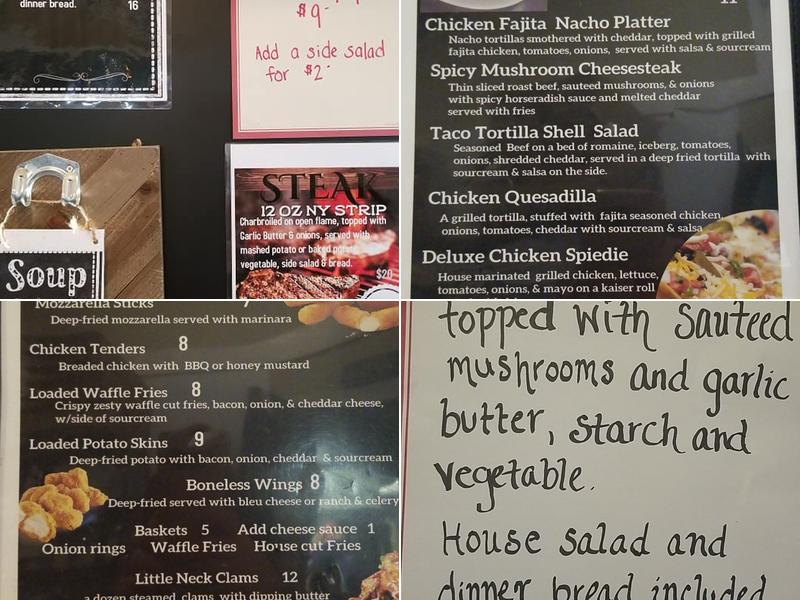 dinner bread.
16
$9-
Add a side salad
for $2.
STEAK
12 OZ NY STRIP
Charbroiled on open flame, topped with
Garlic Butter & onions, served with
mashed potato or baked potato,
vegetable, side salad & bread.
$20
Soup
Chicken Fajita Nacho Platter
Nacho tortillas smothered with cheddar, topped with grilled
fajita chicken, tomatoes, onions, served with salsa & sourcream
Spicy Mushroom Cheesesteak
Thin sliced roast beef, sauteed mushrooms, & onions
with spicy horseradish sauce and melted cheddar
served with fries
Taco Tortilla Shell Salad
Seasoned Beef on a bed of romaine, iceberg, tomatoes,
onions, shredded cheddar, served in a deep fried tortilla with
sourcream & salsa on the side.
Chicken Quesadilla
A grilled tortilla, stuffed with fajita seasoned chicken,
onions, tomatoes, cheddar with sourcream & salsa
Deluxe Chicken Spiedie
House marinated grilled chicken, lettuce,
tomatoes, onions, & mayo on a kaiser roll
Mozzarella Sticks
Deep-fried mozzarella served with marinara
Chicken Tenders 8
Breaded chicken with BBQ or honey mustard
Loaded Waffle Fries 8
Crispy zesty waffle cut fries, bacon, onion, & cheddar cheese,
w/side of sourcream
Loaded Potato Skins 9
Deep-fried potato with bacon, onion, cheddar & sourcream
Boneless Wings 8
Deep-fried served with bleu cheese or ranch & celery
Baskets 5 Add cheese sauce 1
Onion rings Waffle Fries House cut Fries
Little Neck Clams 12
a dozen steamed clams with dipping butter
topped with sauteed
mushrooms and garlic
butter, starch and
vegetable.
House salad and
dinner bread included